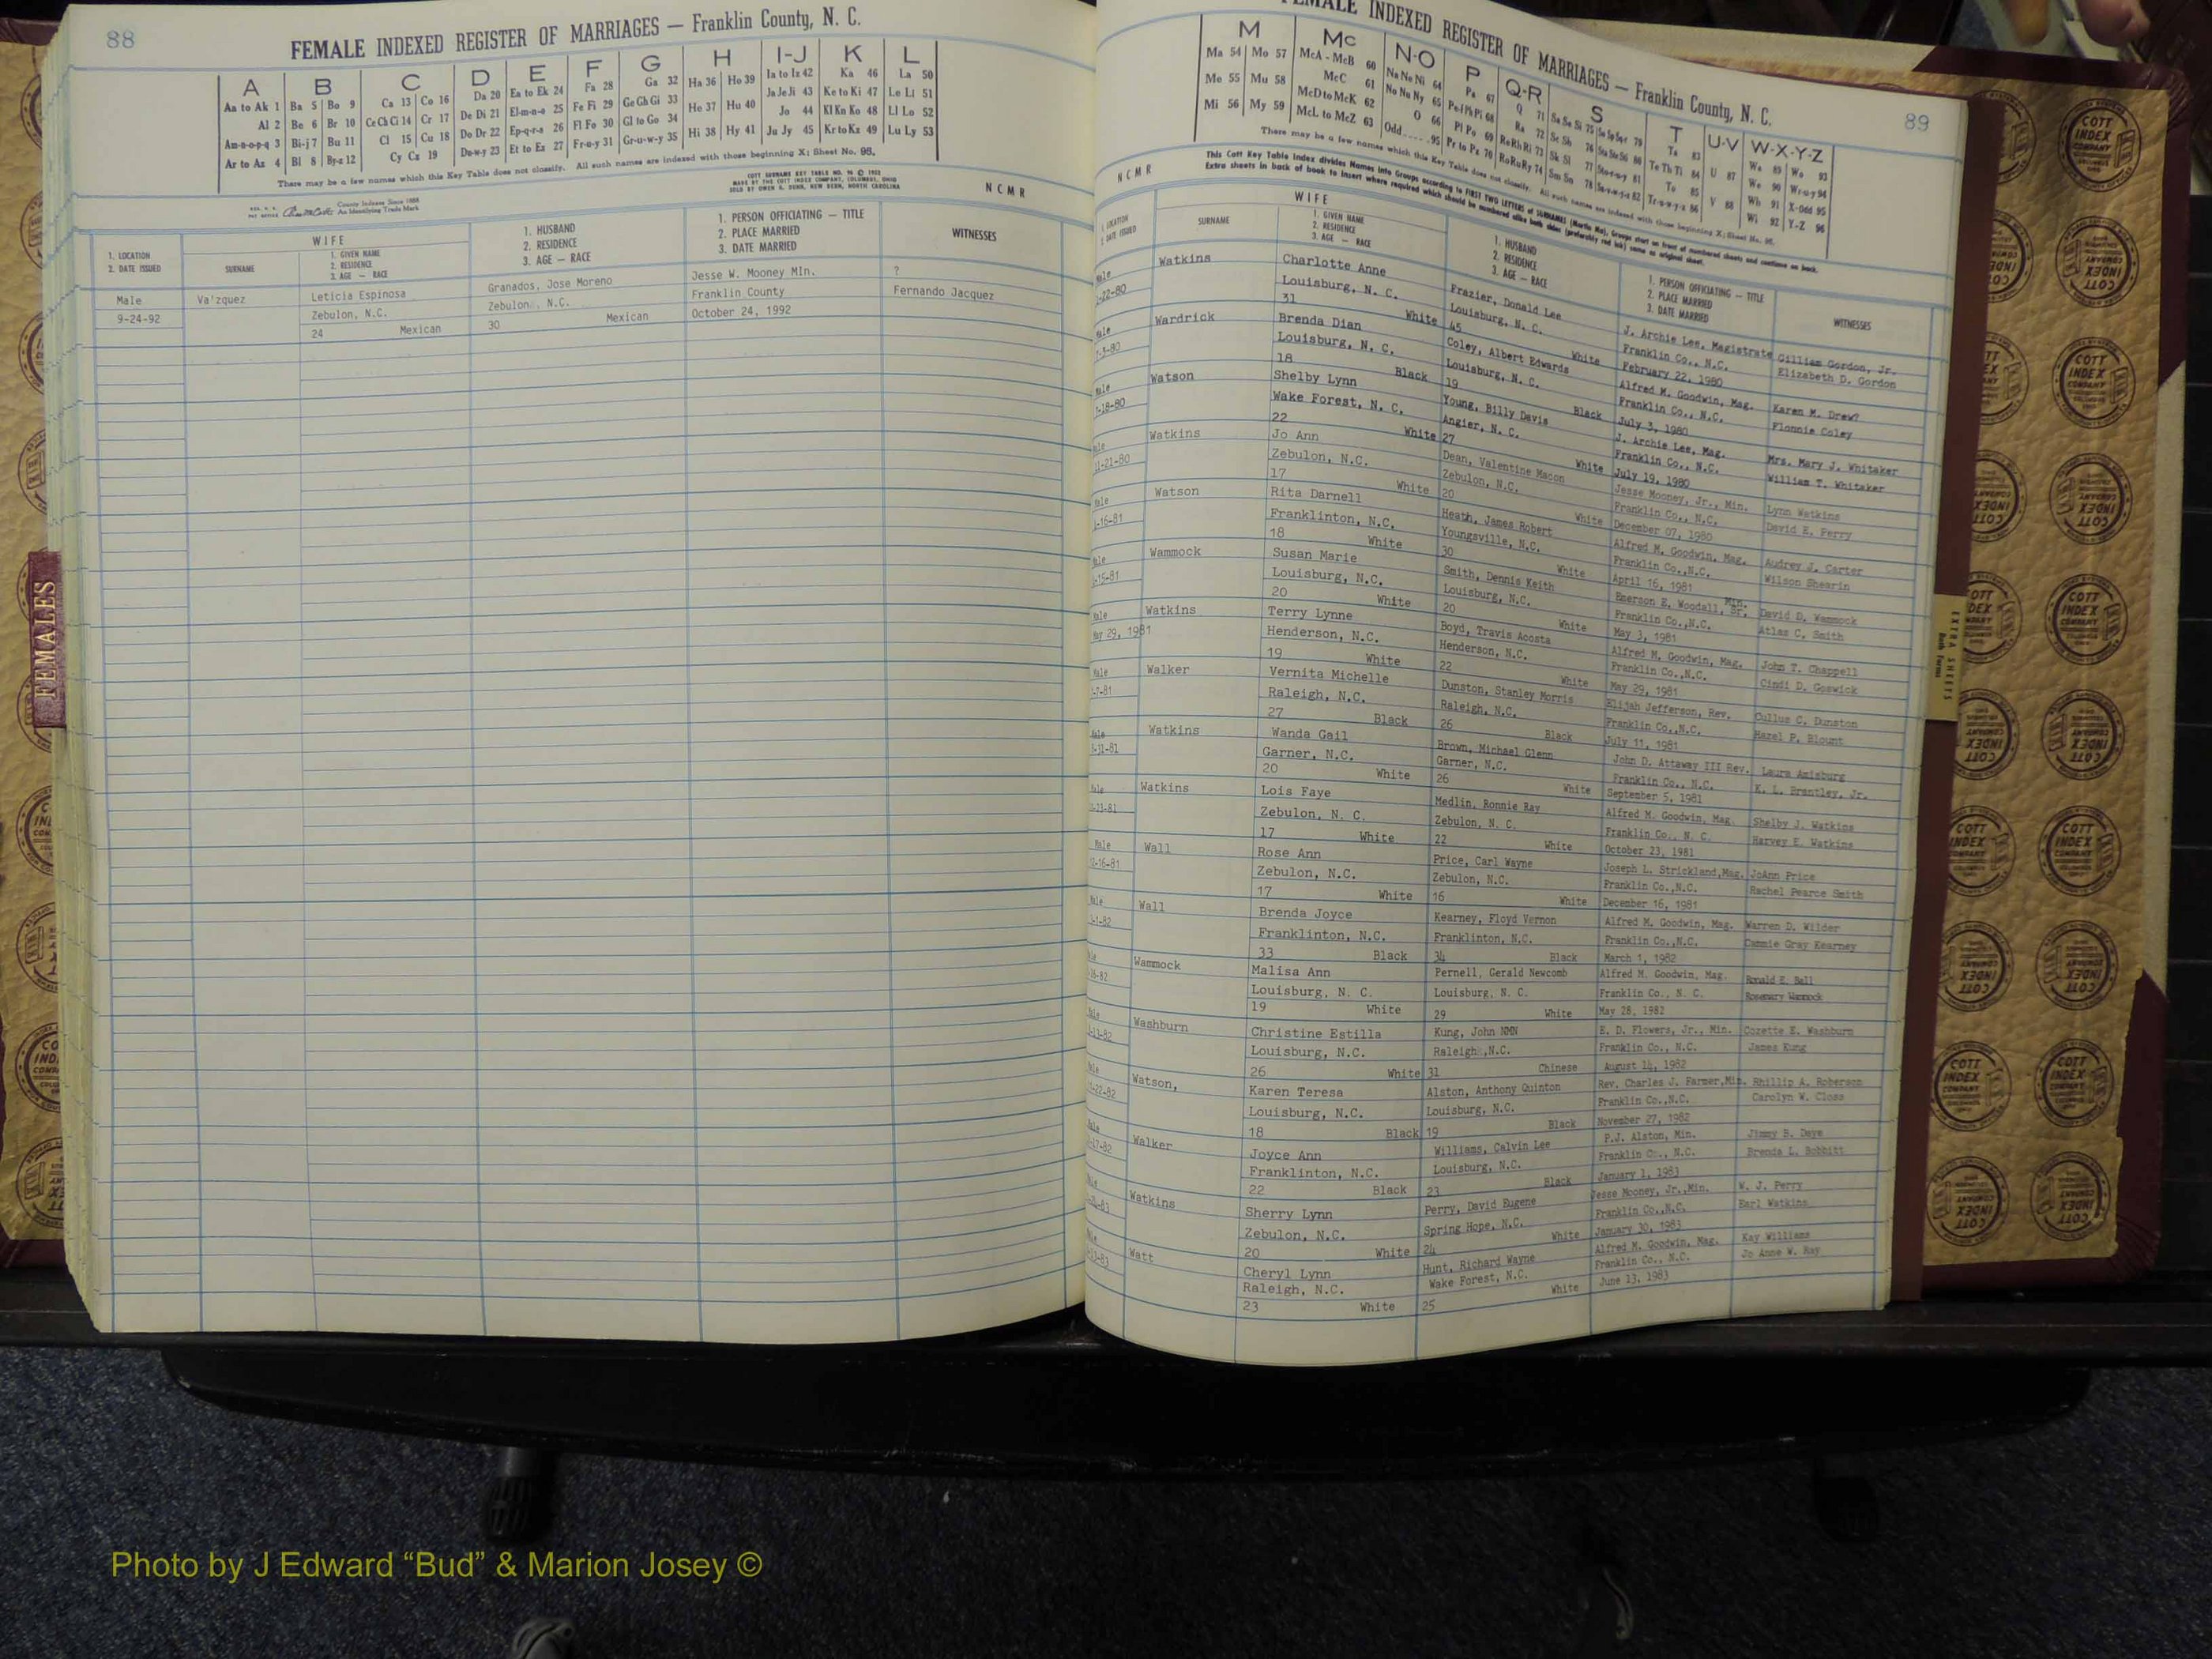 88
FEMALE INDEXED REGISTER OF MARRIAGES — Franklin County, N. C.
A B C D E F G H I-J K L
Aa to Ak 1 Ba 5 Bo 9 Ca 13 Co 16 Da 20 Ea to Ek 24 Fa 28 Ga 32 Ha 36 Ho 39 Ia to Iz 42 Ka 46 La 50
Al 2 Be 6 Br 10 Ce Ch Ci 14 Cr 17 De Di 21 El-m-n-o 25 Fe Fi 29 Ge Gh Gi 33 He 37 Hu 40 Ja Je Ji 43 Ke to Ki 47 Le Li 51
Am-n-o-p-q 3 Bi-j 7 Bu 11 Cl 15 Cu 18 Do Dr 22 Ep-q-r-s 26 Fl Fo 30 Gl to Go 34 Hi 38 Hy 41 Jo 44 Kl Kn Ko 48 Ll Lo 52
Ar to Az 4 Bl 8 By-z 12 Cy Cz 19 Du-w-y 23 Et to Ez 27 Fr-u-y 31 Gr-u-w-y 35 Ju Jy 45 Kr to Kz 49 Lu Ly 53
There may be a few names which this Key Table does not classify. All such names are indexed with those beginning X; Sheet No. 95.
County Indexes Since 1888
An Identifying Trade Mark
N C M R
1. LOCATION
2. DATE ISSUED
WIFE
SURNAME
1. GIVEN NAME
2. RESIDENCE
3. AGE — RACE
1. HUSBAND
2. RESIDENCE
3. AGE — RACE
1. PERSON OFFICIATING — TITLE
2. PLACE MARRIED
3. DATE MARRIED
WITNESSES
Male Va'zquez Leticia Espinosa Granados, Jose Moreno Jesse W. Mooney MIn. ?
9-24-92 Zebulon, N.C. Zebulon, N.C. Franklin County Fernando Jacquez
24 Mexican 30 Mexican October 24, 1992
FEMALES
FEMALE INDEXED REGISTER OF MARRIAGES — Franklin County, N. C.
89
M Mc N-O P Q-R S T U-V W-X-Y-Z
There may be a few names which this Key Table does not classify. All such names are indexed with those beginning X; Sheet No. 95.
This Cott Key Table Index divides Names into Groups according to FIRST TWO LETTERS of SURNAMES
N C M R
WIFE
SURNAME
1. GIVEN NAME
2. RESIDENCE
3. AGE — RACE
1. HUSBAND
2. RESIDENCE
3. AGE — RACE
1. PERSON OFFICIATING — TITLE
2. PLACE MARRIED
3. DATE MARRIED
WITNESSES
Watkins Charlotte Anne Frazier, Donald Lee J. Archie Lee, Magistrate Gilliam Gordon, Jr.
Louisburg, N. C. Louisburg, N. C. Franklin Co., N.C. Elizabeth D. Gordon
31 White 45 White February 22, 1980
Wardrick Brenda Dian Coley, Albert Edwards Alfred M. Goodwin, Mag. Karen M. Drew?
Louisburg, N. C. Louisburg, N. C. Franklin Co., N.C. Flonnie Coley
18 Black 19 Black July 3, 1980
Watson Shelby Lynn Young, Billy Davis J. Archie Lee, Mag. Mrs. Mary J. Whitaker
Wake Forest, N. C. Angier, N. C. Franklin Co., N.C. William T. Whitaker
22 White 27 White July 19, 1980
Watkins Jo Ann Dean, Valentine Macon Jesse Mooney, Jr., Min. Lynn Watkins
11-21-80 Zebulon, N.C. Zebulon, N.C. Franklin Co., N.C. David E. Perry
17 White 20 White December 07, 1980
Watson Rita Darnell Heath, James Robert Alfred M. Goodwin, Mag. Audrey J. Carter
Franklinton, N.C. Youngsville, N.C. Franklin Co.,N.C. Wilson Shearin
18 White 30 White April 16, 1981
Wammock Susan Marie Smith, Dennis Keith Emerson E. Woodall, Sr. Min. David D. Wammock
Louisburg, N.C. Louisburg, N.C. Franklin Co.,N.C. Atlas C. Smith
20 White 20 White May 3, 1981
Watkins Terry Lynne Boyd, Travis Acosta Alfred M. Goodwin, Mag. John T. Chappell
May 29, 1981 Henderson, N.C. Henderson, N.C. Franklin Co.,N.C. Cindi D. Goswick
19 White 22 White May 29, 1981
Male Walker Vernita Michelle Dunston, Stanley Morris Elijah Jefferson, Rev. Cullus C. Dunston
Raleigh, N.C. Raleigh, N.C. Franklin Co.,N.C. Hazel P. Blount
27 Black 26 Black July 11, 1981
Watkins Wanda Gail Brown, Michael Glenn John D. Attaway III Rev.
Garner, N.C. Garner, N.C. Franklin Co., N.C. K. L. Brantley, Jr.
20 White 26 White September 5, 1981
Watkins Lois Faye Medlin, Ronnie Ray Alfred M. Goodwin, Mag. Shelby J. Watkins
Zebulon, N. C. Zebulon, N. C. Franklin Co., N. C. Harvey E. Watkins
17 White 22 White October 23, 1981
Male Wall Rose Ann Price, Carl Wayne Joseph L. Strickland,Mag. JoAnn Price
12-16-81 Zebulon, N.C. Zebulon, N.C. Franklin Co.,N.C. Rachel Pearce Smith
17 White 16 White December 16, 1981
Wall Brenda Joyce Kearney, Floyd Vernon Alfred M. Goodwin, Mag. Warren D. Wilder
Franklinton, N.C. Franklinton, N.C. Franklin Co.,N.C. Cammie Gray Kearney
33 Black 34 Black March 1, 1982
Wammock Malisa Ann Pernell, Gerald Newcomb Alfred M. Goodwin, Mag. Ronald E. Ball
Louisburg, N. C. Louisburg, N. C. Franklin Co., N. C. Rosemary Wammock
19 White 29 White May 28, 1982
Washburn Christine Estilla Kung, John NMN E. D. Flowers, Jr., Min. Cozette E. Washburn
Louisburg, N.C. Raleigh,N.C. Franklin Co., N.C. James Kung
26 White 31 Chinese August 14, 1982
Watson, Karen Teresa Alston, Anthony Quinton Rev. Charles J. Farmer,Min. Rhillip A. Roberson
Louisburg, N.C. Louisburg, N.C. Franklin Co.,N.C. Carolyn W. Closs
18 Black 19 Black November 27, 1982
Walker Joyce Ann Williams, Calvin Lee P.J. Alston, Min. Jimmy B. Daye
Franklinton, N.C. Louisburg, N.C. Franklin Co., N.C. Brenda L. Bobbitt
22 Black 23 Black January 1, 1983
Watkins Sherry Lynn Perry, David Eugene Jesse Mooney, Jr.,Min. W. J. Perry
Zebulon, N.C. Spring Hope, N.C. Franklin Co.,N.C. Earl Watkins
20 White 24 White January 30, 1983
Watt Cheryl Lynn Hunt, Richard Wayne Alfred M. Goodwin, Mag. Kay Williams
Raleigh, N.C. Wake Forest, N.C. Franklin Co., N.C. Jo Anne W. Ray
23 White 25 White June 13, 1983
EXTRA SHEETS
COTT INDEX COMPANY
Photo by J Edward “Bud” & Marion Josey ©